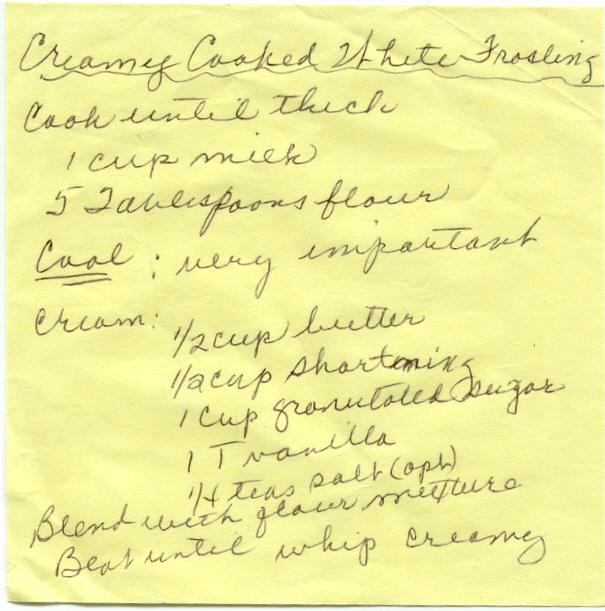 Creamy Cooked White Frosting
Cook until thick
1 cup milk
5 Tablespoons flour
Cool : very important
Cream:
1/2 cup butter
1/2 cup shortening
1 Cup granutated sugar
1 T vanilla
1/4 teas salt (opt)
Blend with flour mixture
Beat until whip creamy